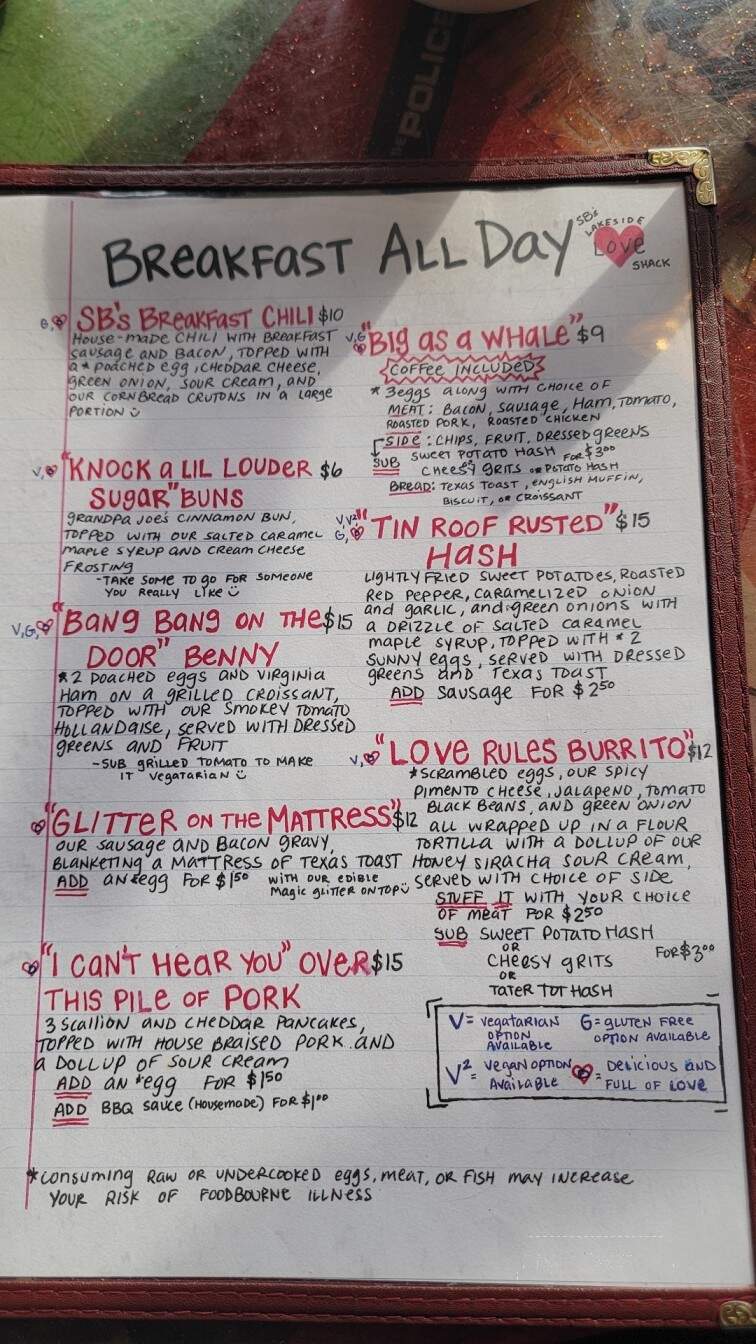 THE POLICE
BREAKFAST ALL DAY
SB's LAKESIDE
Love
SHACK
G,
SB's BREAKFAST CHILI $10
HOUSE-MADE CHILI WITH BREAKFAST
SAUSAGE AND BACON, TOPPED WITH
a * POACHED egg, CHEDDAR CHEESE,
GREEN ONION, SOUR CREAM, AND
OUR CORNBREAD CRUTONS IN A LARGE
PORTION
V,
"KNOCK a LIL LOUDER $6
SUGAR" BUNS
GRANDPA JOE'S CINNAMON BUN,
TOPPED WITH OUR SALTED CARAMEL
MAPLE SYRUP AND CREAM CHEESE
FROSTING
-TAKE SOME TO GO FOR SOMEONE
YOU REALLY LIKE
V,G,
"BANG BANG ON THE $15
DOOR" BENNY
*2 POACHED eggs AND VIRGINIA
HAM ON A GRILLED CROISSANT,
TOPPED WITH OUR SMOKEY TOMATO
HOLLANDAISE, SERVED WITH DRESSED
GREENS AND FRUIT
-SUB GRILLED TOMATO TO MAKE
IT VEGATARIAN
"GLITTER ON THE MATTRESS" $12
OUR SAUSAGE AND BACON GRAVY,
BLANKETING A MATTRESS OF TEXAS TOAST
ADD AN *egg FOR $1.50
WITH OUR EDIBLE
MAGIC GLITTER ON TOP
"I CAN'T HEAR YOU" OVER $15
THIS PILE OF PORK
3 SCALLION AND CHEDDAR PANCAKES,
TOPPED WITH HOUSE BRAISED PORK AND
A DOLLUP OF SOUR CREAM
ADD AN *egg FOR $1.50
ADD BBQ SAUCE (HOUSEMADE) FOR $1.00
V,G
"BIG AS A WHALE" $9
COFFEE INCLUDED
* 3 eggs ALONG WITH CHOICE OF
MEAT: BACON, SAUSAGE, HAM, TOMATO,
ROASTED PORK, ROASTED CHICKEN
SIDE: CHIPS, FRUIT, DRESSED GREENS
SUB SWEET POTATO HASH FOR $3.00
CHEESY GRITS OR POTATO HASH
BREAD: TEXAS TOAST, ENGLISH MUFFIN,
BISCUIT, OR CROISSANT
V,V²
G,
"TIN ROOF RUSTED" $15
HASH
LIGHTLY FRIED SWEET POTATOES, ROASTED
RED PEPPER, CARAMELIZED ONION
AND GARLIC, AND GREEN ONIONS WITH
A DRIZZLE OF SALTED CARAMEL
MAPLE SYRUP, TOPPED WITH * 2
SUNNY eggs, SERVED WITH DRESSED
GREENS AND TEXAS TOAST
ADD SAUSAGE FOR $2.50
V,
"LOVE RULES BURRITO" $12
*SCRAMBLED eggs, OUR SPICY
PIMENTO CHEESE, JALAPENO, TOMATO
BLACK BEANS, AND GREEN ONION
ALL WRAPPED UP IN A FLOUR
TORTILLA WITH A DOLLUP OF OUR
HONEY SIRACHA SOUR CREAM,
SERVED WITH CHOICE OF SIDE
STUFF IT WITH YOUR CHOICE
OF MEAT FOR $2.50
SUB SWEET POTATO HASH
OR
CHEESY GRITS FOR $3.00
OR
TATER TOT HASH
V = VEGATARIAN OPTION AVAILABLE
G = GLUTEN FREE OPTION AVAILABLE
V² = VEGAN OPTION AVAILABLE
= DELICIOUS AND FULL OF LOVE
*CONSUMING RAW OR UNDERCOOKED eggs, MEAT, OR FISH MAY INCREASE
YOUR RISK OF FOODBOURNE ILLNESS